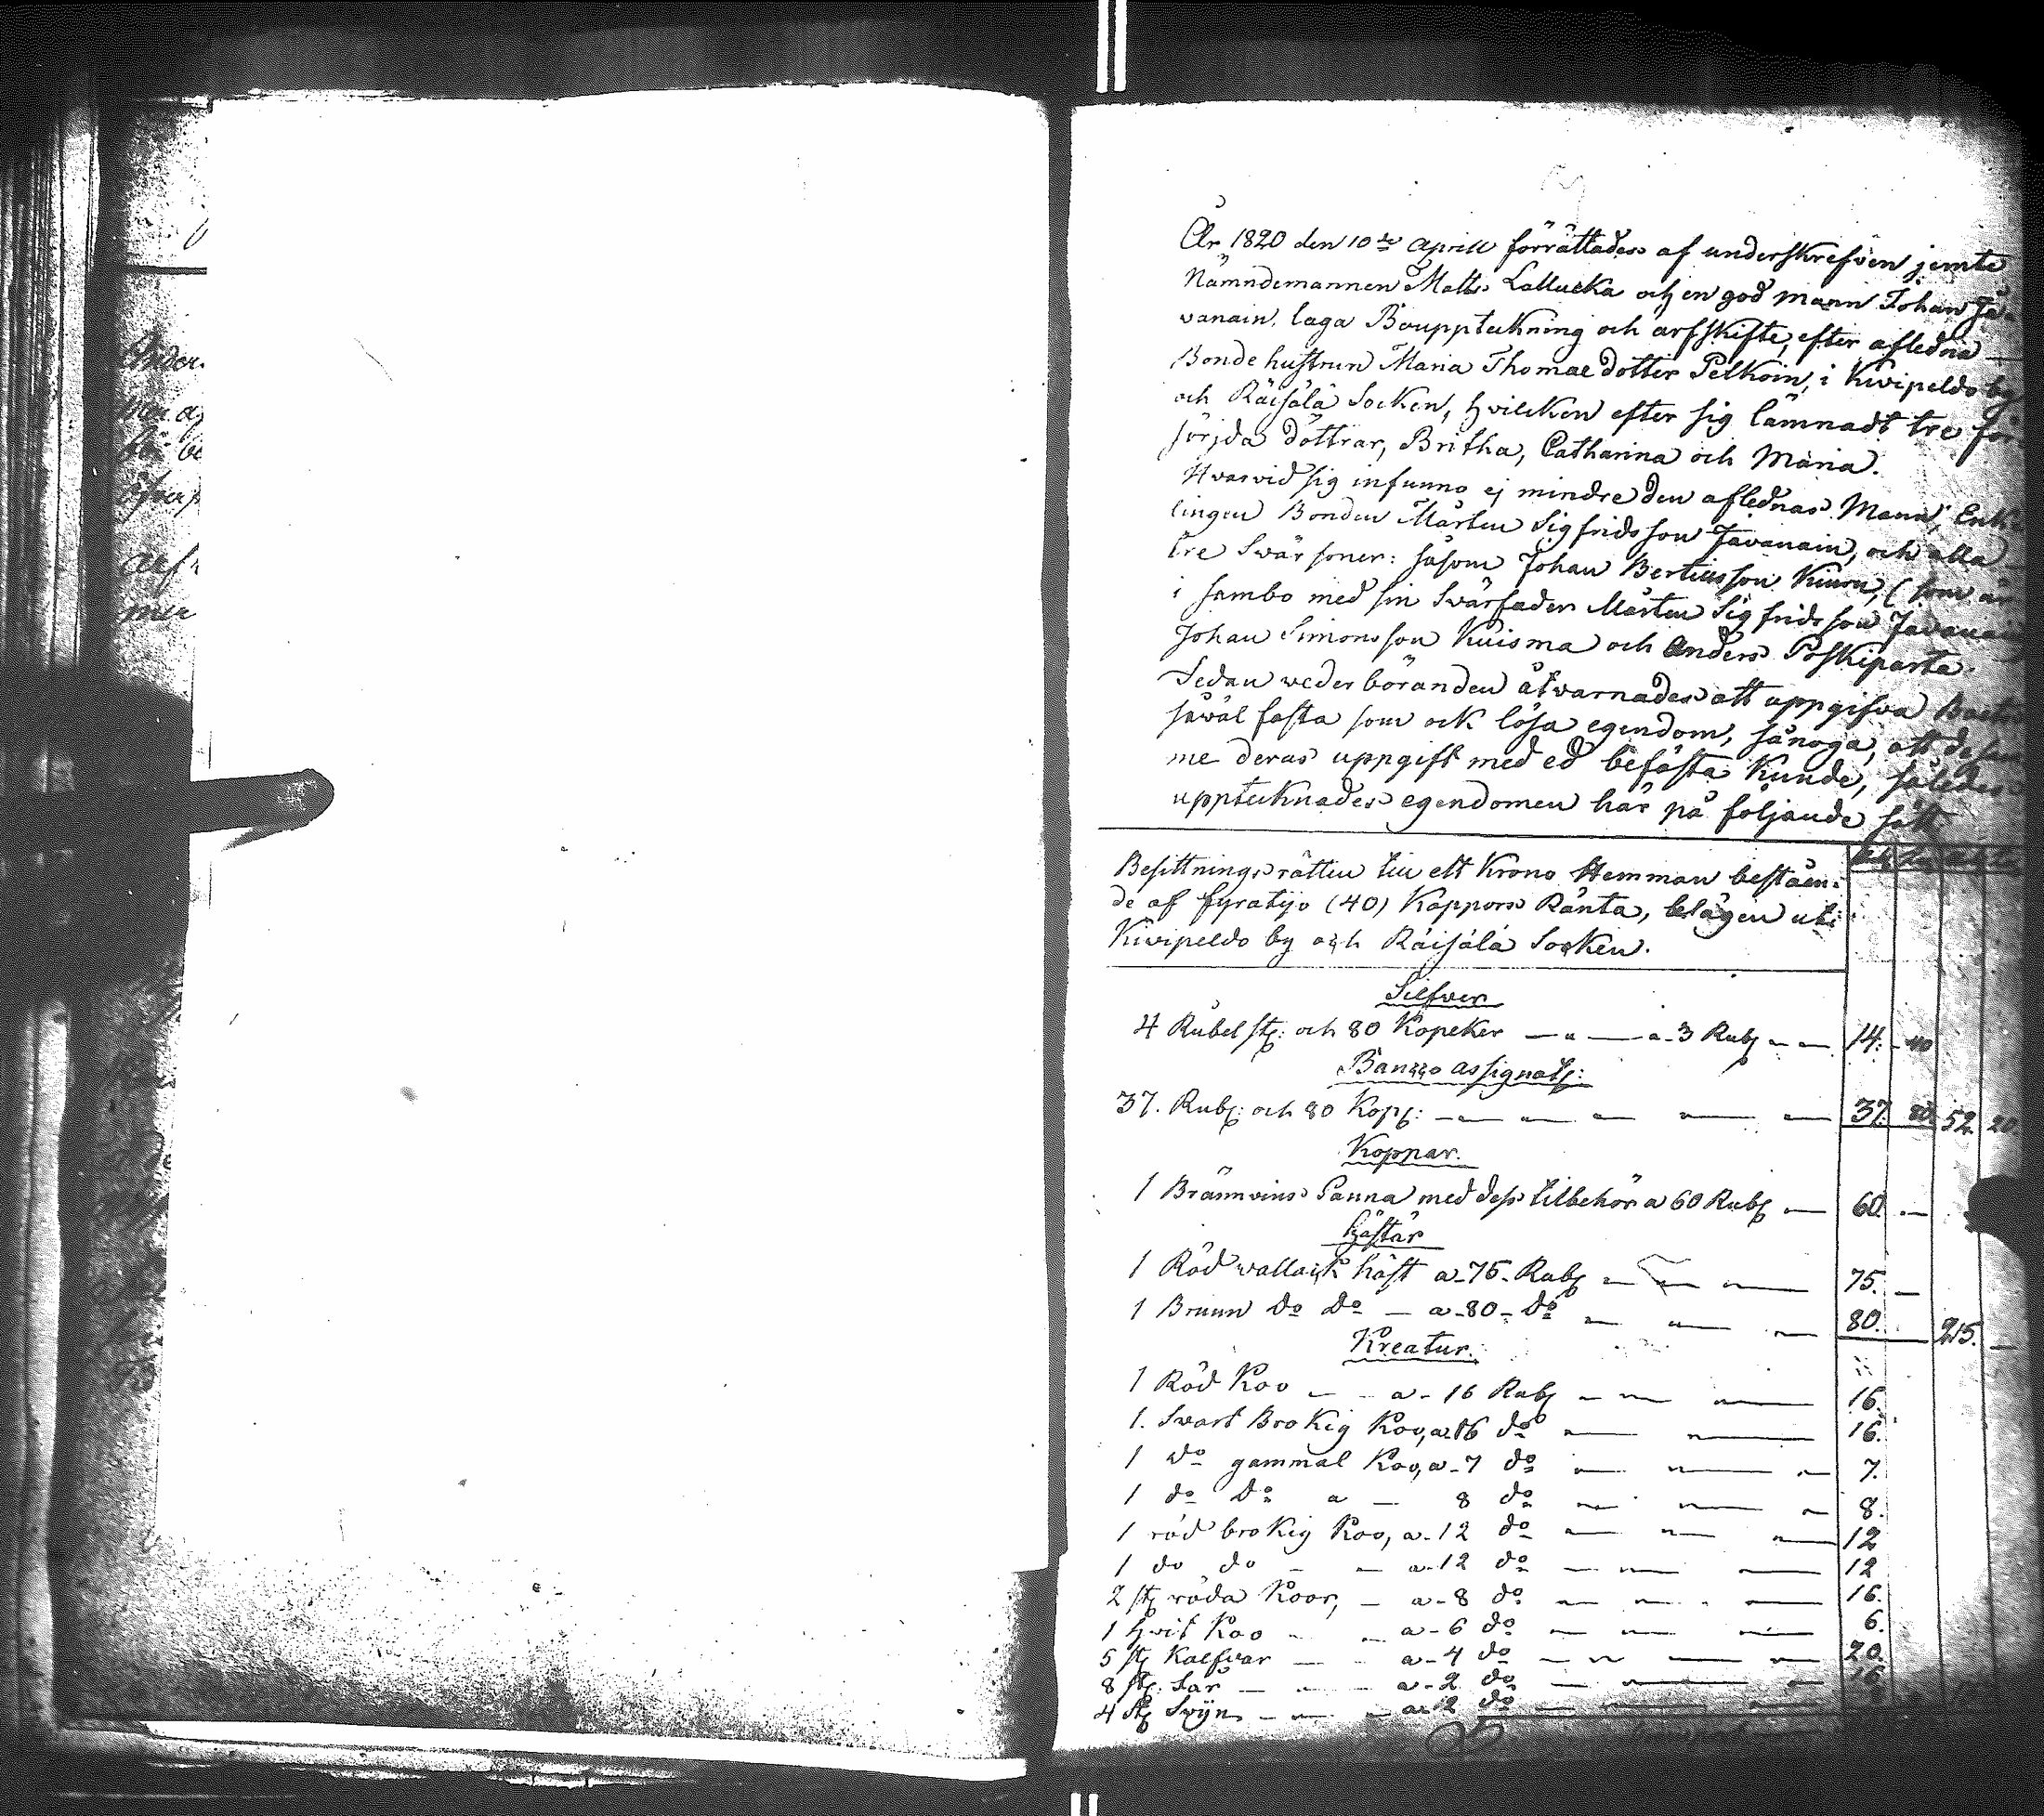 År 1820 den 10de Aprill förrättades af underskrefven jemte
Nämndemannen Matts Lallucka och en god mann Johan Ja-
vanain, laga Bouppteckning och arfskifte, efter aflednа
Bonde hustrun Maria Thomae dotter Pelkoin, i Kivipeldo by
och Räisälä Socken, hvilcken efter sig lämnadt tre för-
sörjda döttrar, Britha, Catharina och Maria.
Hvarvid sig infunno ej mindre den aflednas Mann, Enk-
lingen Bonden Mårten Sigfridsson Javanain, och alla
tre Svär soner: såsom Johan Bertilsson Kiuru, (som är
i sambo med sin Svärfader Mårten Sigfridsson Javanain
Johan Simonsson Kuisma och Anders Poskiparta.
Sedan wederböranden åtvarnades att uppgifva Boets
såväl fasta som ock lösa egendom, så noga, att de sam-
me deras uppgift med ed befästa Kunde, således
upptecknades egendomen här på följande sätt.
Besittningsrätten till ett Krono Hemman beståen-
de af fyratijo (40) Kappors Ränta, belägen uti
Kivipeldo by och Räisälä Socken.
Silfver
4 Rubel st: och 80 Kopeker a 3 Rub 14. 40
Banco assignat:
37. Rub: och 80 Kop: 37. 80. 52. 20
Koppar.
1 Brännvins Panna med dess tilbehör a 60 Rub 60.
Hästar
1 Röd wallack häst a 75 Rub 75.
1 Bruun do do a 80 do 80. 215.
Kreatur.
1 Röd Koo a 16 Rub 16.
1. Svart Brokig Koo, a 16 do 16.
1 do gammal Koo, a 7 do 7.
1 do do a 8 do 8.
1 röd brokig Koo, a 12 do 12
1 do do a 12 do 12
2 st röda Koor, a 8 do 16.
1 hvit Koo a 6 do 6.
5 st Kalfvar a 4 do 20.
8 st. Får a 2 do 16
4 st Svijn a 2 do